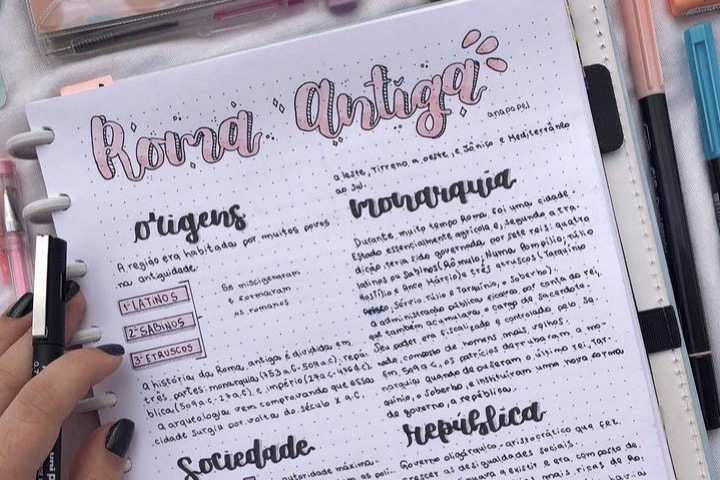 Roma Antiga
anapapel
origens
A região era habitada por muitos povos
na antiguidade.
1- LATINOS
2- SABINOS
3- ETRUSCOS
Se miscigenaram
e formaram
os romanos
a história da Roma antiga é dividida em
três partes: monarquia (753 a.C-509 a.C); repú
blica (509 a.C-27 a.C), e império (27 a.C-476 d.C).
a arqueologia vem comprovando que essa
cidade surgiu por volta do século X a.C.
Sociedade
autoridade máxima.
a leste, Tirreno a oeste, e Jônico e Mediterrâneo
ao sul.
monarquia
Durante muito tempo Roma, foi uma cidade-
Estado essencialmente agrícola e, segundo a tra-
dição, teria sido governada, por sete reis: quatro
latinos ou Sabinos (Rômulo, Numa Pompílio, Túlio
Hostílio e Anco Márcio) e três etruscos (Tarquínio
Sérvio Túlio e Tarquínio, o Soberbo).
a administração pública ficava por conta do rei,
que também acumulava o cargo de sacerdote.
Seu poder era fiscalizado e controlado pelo se-
nado, composto de homens mais velhos.
Em 509 a.C, os patrícios derrubaram a mo-
narquia quando depuseram o último rei, Tar-
quínio, o soberbo, e instituíram uma nova forma
de governo, a república.
república
Governo oligárquico-aristocrático que fez
crescer as desigualdades sociais.
a existir e era composto de
mais ricas de Ro-
uni